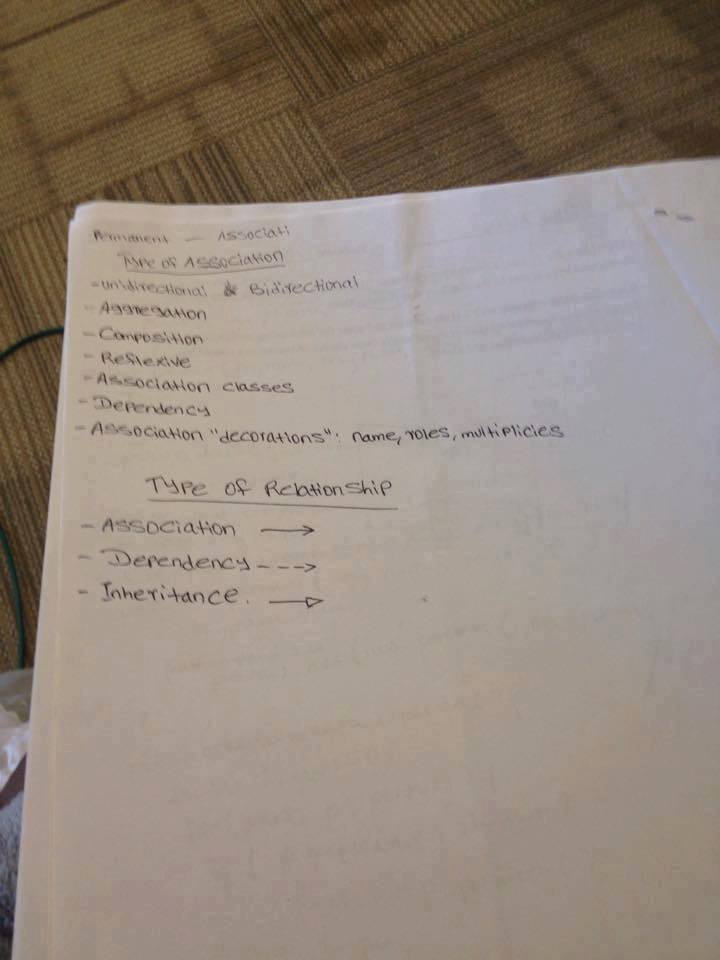 Permanent — Associati
Type of Association
- Unidirectional & Bidirectional
- Aggregation
- Composition
- Reflexive
- Association classes
- Dependency
- Association "decorations": name, roles, multiplicies
Type of Relationship
- Association →
- Dependency - - - →
- Inheritance. —▷